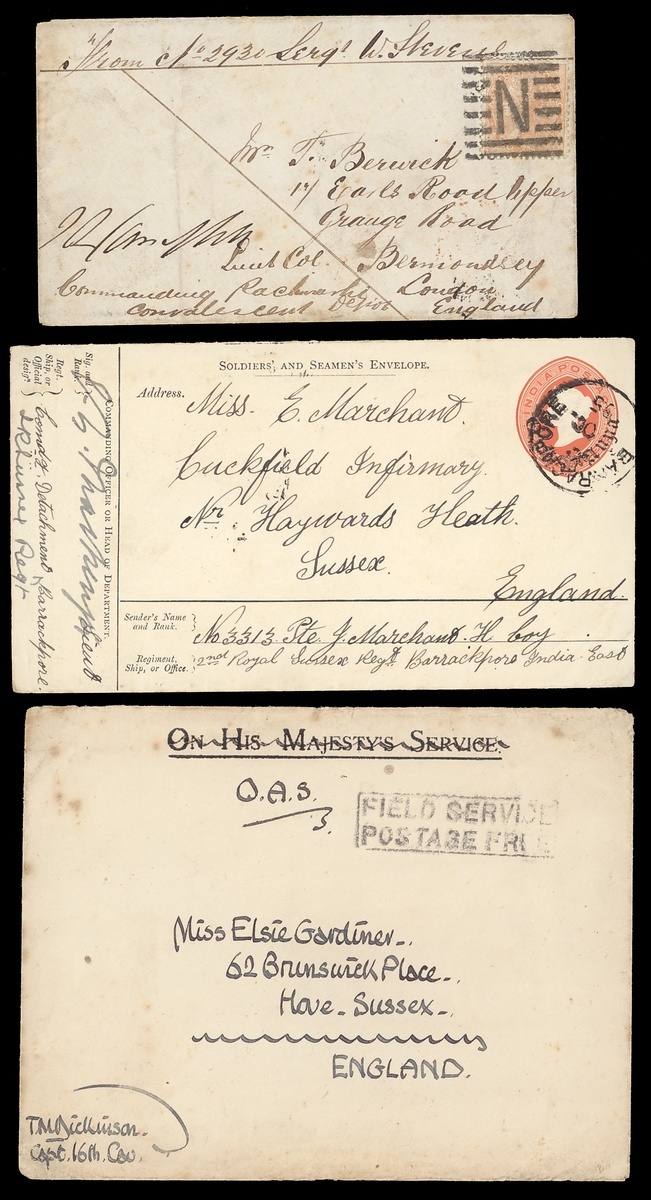 From No 2930 Sergt W. Stevens
N
Mr T. Berwick
17 Earls Road Upper
Grange Road
Bermondsey
London
England
Lieut Col.
Commanding
Convalescent Depot
SOLDIERS' AND SEAMEN'S ENVELOPE.
INDIA POSTAGE
BARRACKPORE
Address.
Miss. E. Marchant.
Cuckfield Infirmary.
Nr. Haywards Heath.
Sussex.
England.
Sender's Name and Rank.
No 3313 Pte J. Marchant. H. Coy
Regiment, Ship, or Office.
2nd Royal Sussex Regt Barrackpore India East
COMMANDING OFFICER OR HEAD OF DEPARTMENT.
Sig. and Rank.
Lieut
Regt. Ship, or Official desigt.
Comdg. Detachment Barrackpore.
Regt
ON HIS MAJESTY'S SERVICE.
O.A.S.
FIELD SERVICE
POSTAGE FREE
Miss Elsie Gardiner.
62 Brunswick Place.
Hove. Sussex.
ENGLAND.
T.M. Dickinson.
Capt. 16th. Cav.